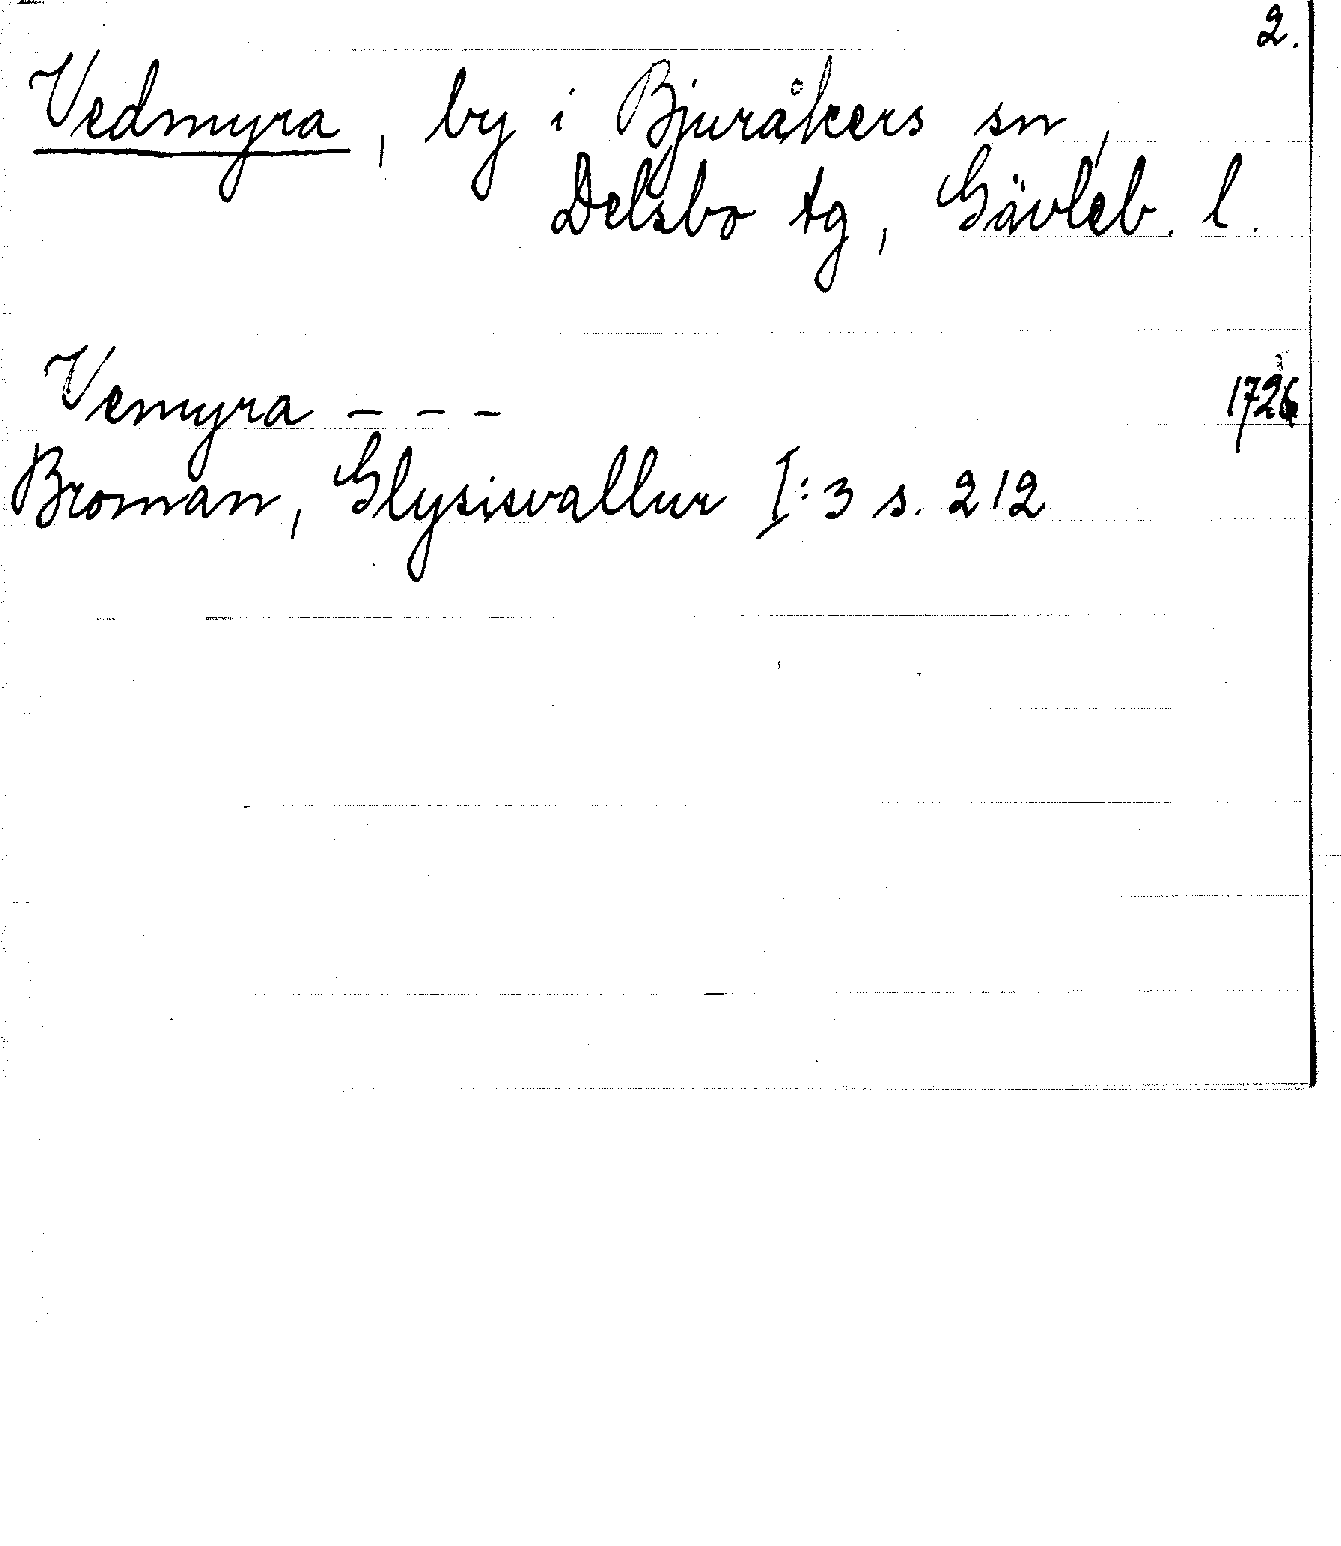 2.
Vedmyra, by i Bjuråkers sn,
Delsbo tg, Gävleb. l.
Vemyra – – – 1726
Broman, Glysisvallur I:3 s. 212